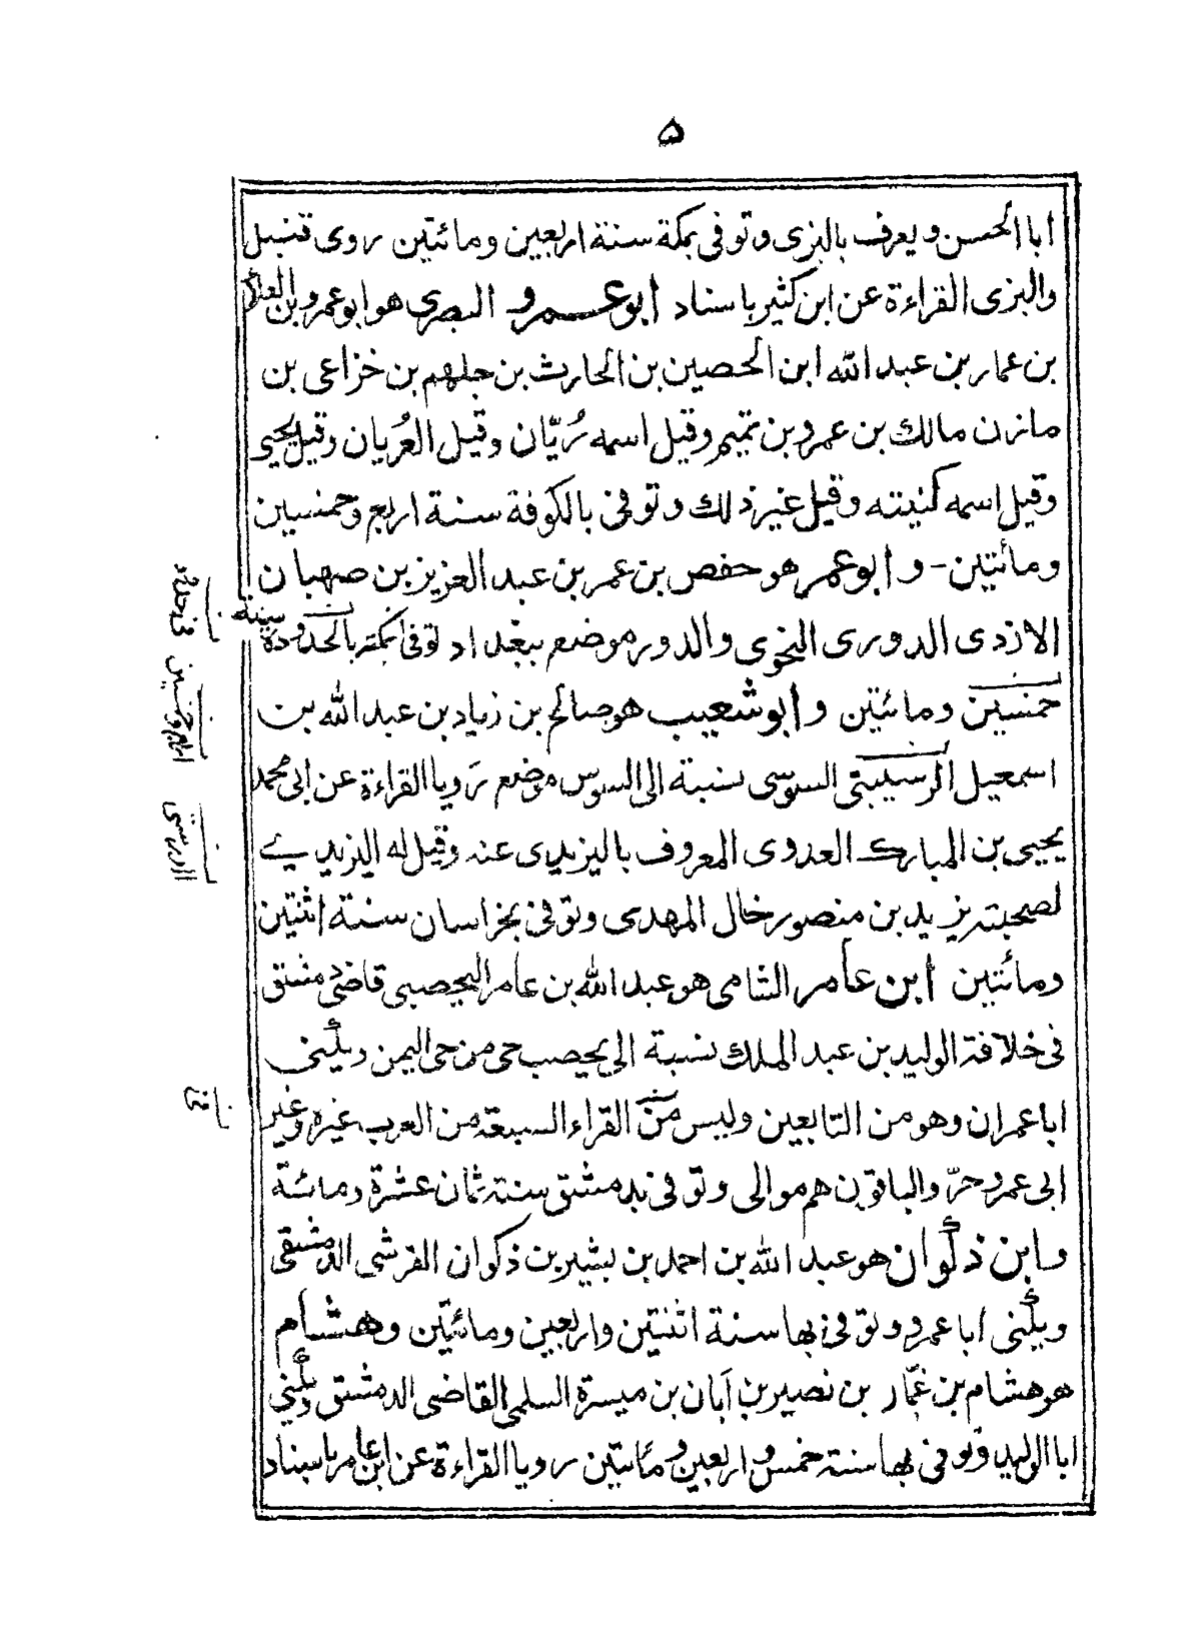 ۵
ابا الحسن ويعرف بالبزى وتوفى بمكة سنة اربعين ومائتين روى قنبل
والبزى القراءة عن ابن كثير باسناد أبو عمرو البصرى هو ابو عمرو بن العلأ
بن عمار بن عبد الله ابن الحصين بن الحارث بن جلهم بن خزاعى بن
مازن مالك بن عمرو بن تميم وقيل اسمه زُبّان وقيل العُريان وقيل يحيى
وقيل اسمه كنيته وقيل غير ذلك وتوفى بالكوفة سنة اربع وخمسين
ومائتين - و أبو عمر هو حفص بن عمر بن عبد العزيز بن صهبان
الازدى الدورى النحوى والدور موضع ببغداد توفى سنة
خمسين ومائتين و أبو شعيب هو صالح بن زياد بن عبد الله بن
اسمعيل الرسيبتى السوسى نسبة الى السوس موضع رَويا القراءة عن ابى محمد
يحيى بن المبارك العدوى المعروف باليزيدى عنه وقيل له اليزيدي
لصحبته يزيد بن منصور خال المهدى وتوفى بخراسان سنة اثنتين
ومائتين أبن عامر الشامى هو عبد الله بن عامر اليحصبى قاضى دمشق
فى خلافة الوليد بن عبد الملك نسبة الى يحصب حى من حى اليمن ويكنى
ابا عمران وهو من التابعين وليس من القراء السبعة من العرب غيره وغير
ابى عمرو حرّ والباقون هم موالى وتوفى بدمشق سنة ثمان عشرة ومائة
وابن ذكوان هو عبد الله بن احمد بن بشير بن ذكوان القرشى الدمشقى
ويكنى أبا عمرو وتوفى بها سنة اثنتين واربعين ومائتين وهشام
هو هشام بن عمّار بن نصير بن أبان بن ميسرة السلمى القاضى الدمشق ويكنى
ابا الوليد وتوفى بها سنة خمس واربعين ومائتين رويا القراءة عن ابن عامر باسناد
فى حدود
اربع وخمسين
فى